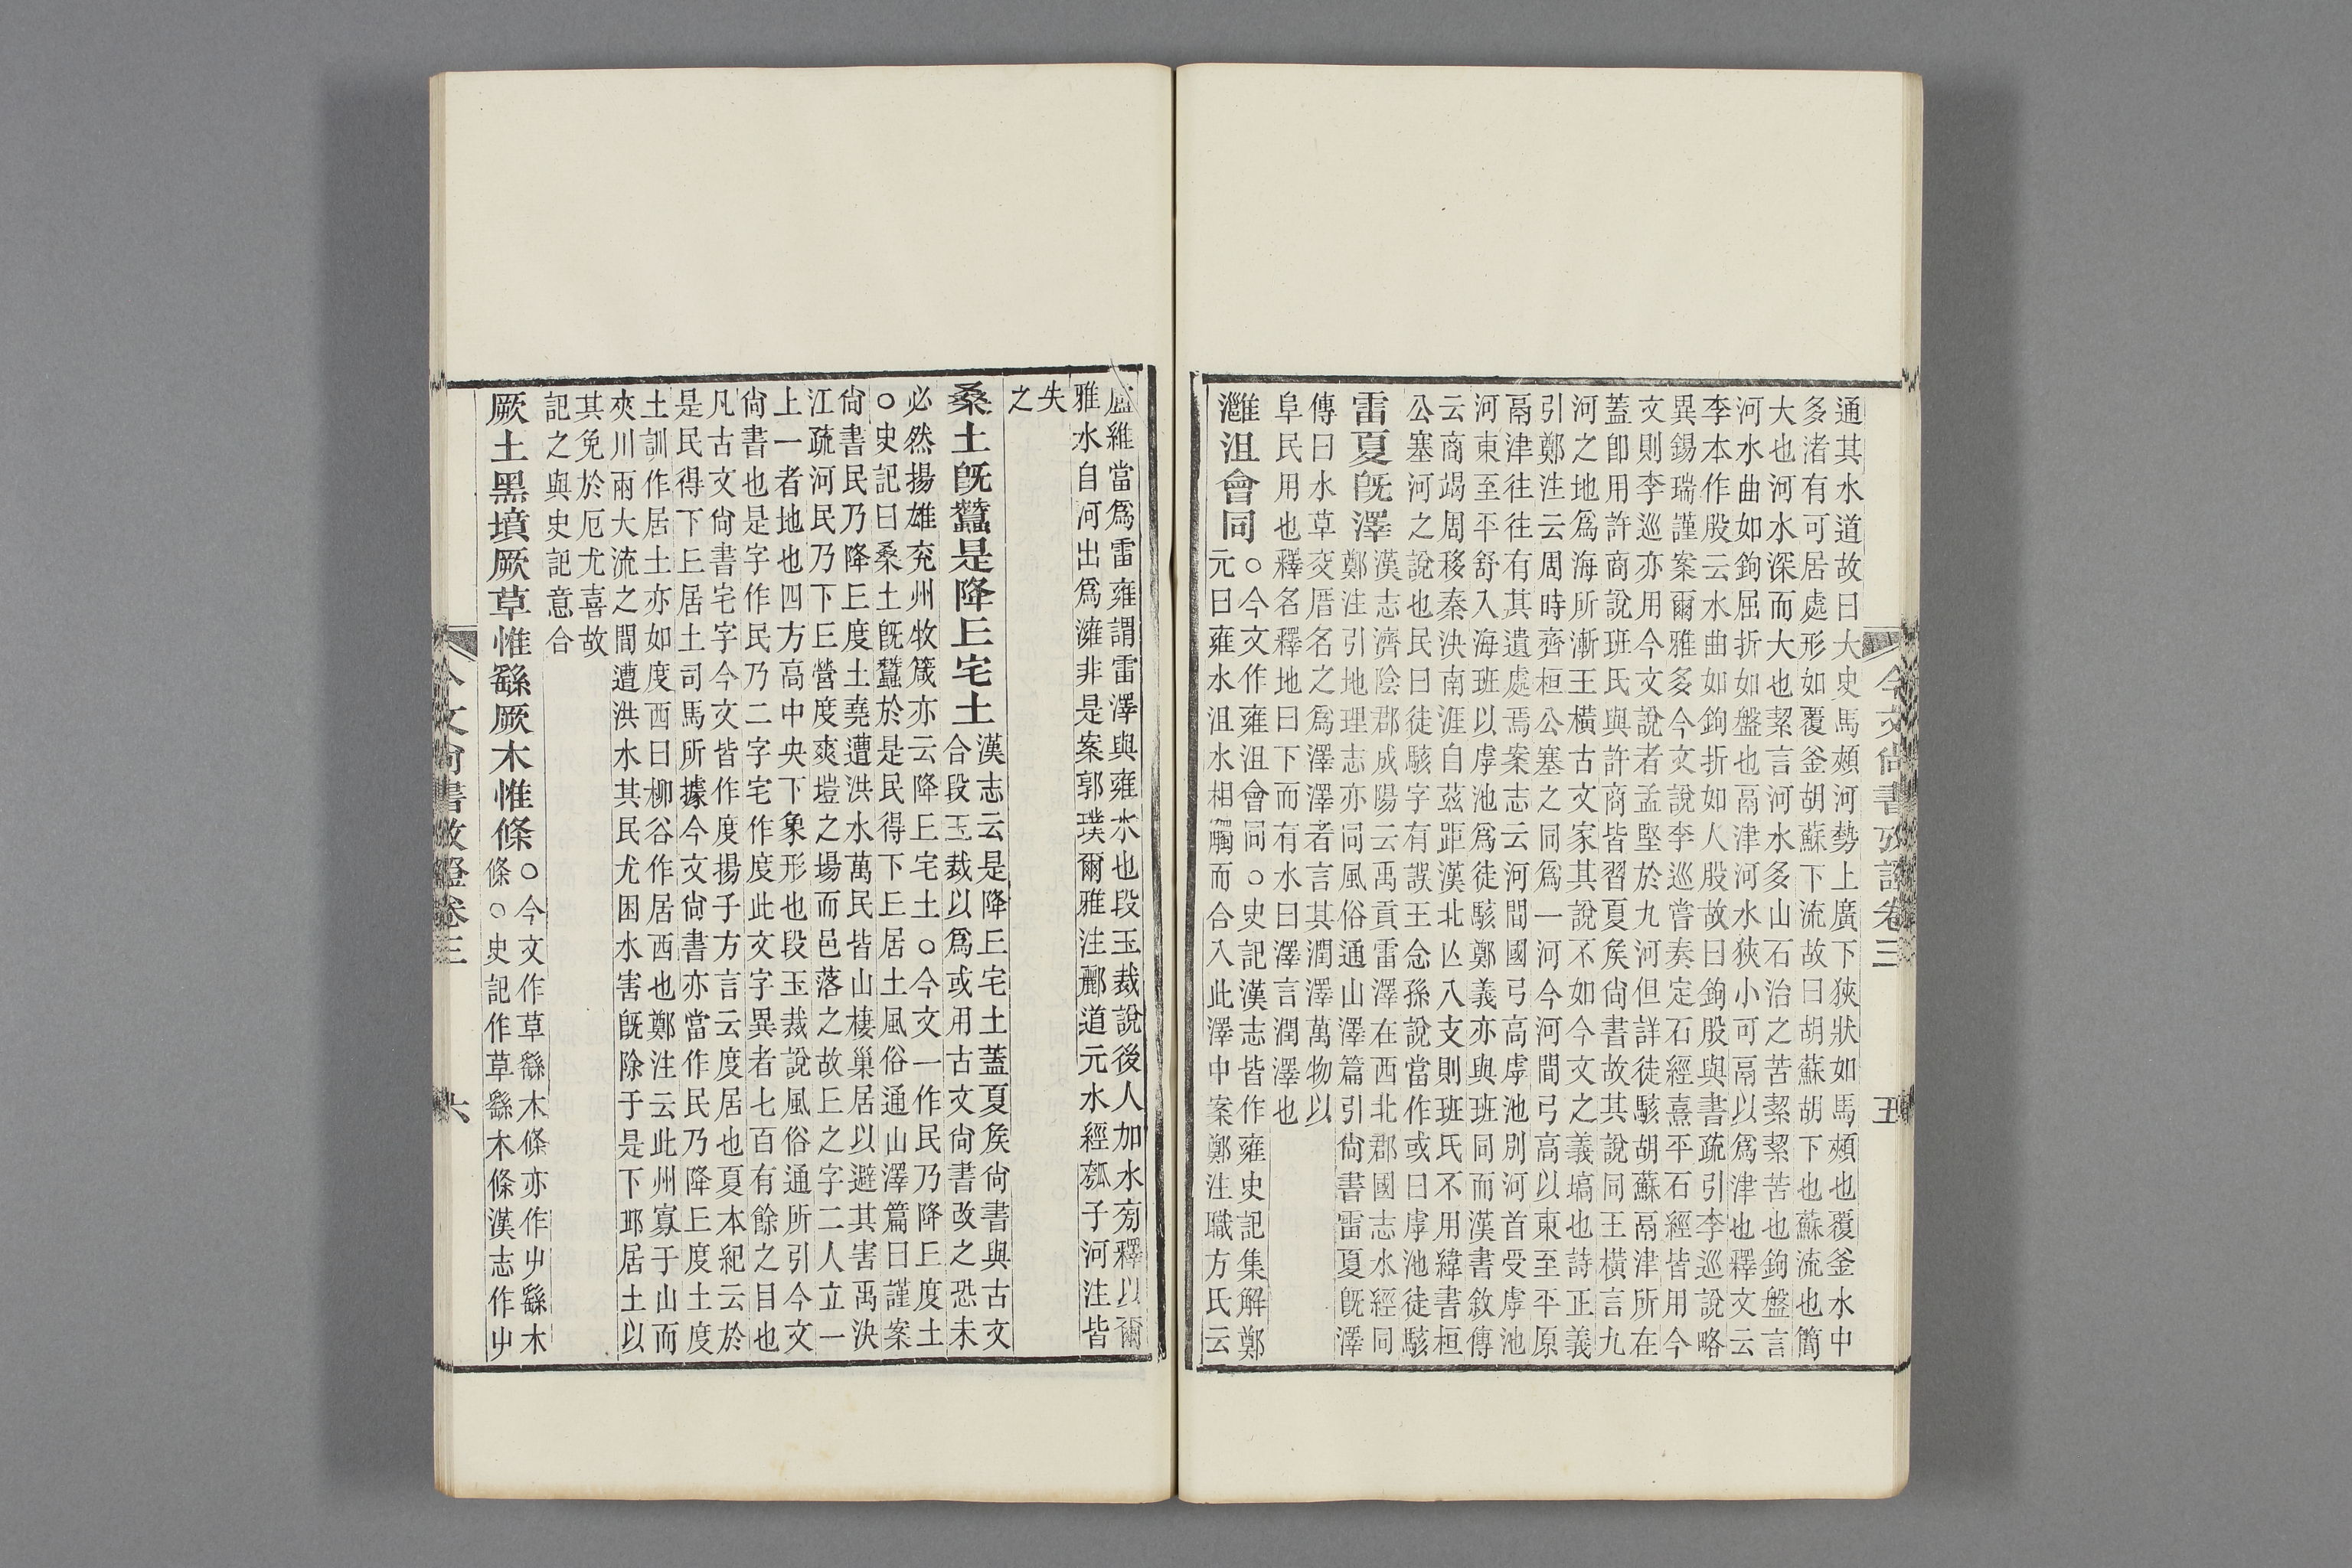 通其水道故曰大史馬頰河勢上廣下狹狀如馬頰也覆釜水中
多渚有可居處形如覆釜胡蘇下流故曰胡蘇胡下也蘇流也簡
大也河水深而大也絜言河水多山石治之苦絜絜苦也鉤盤言
河水曲如鉤屈折如盤也鬲津河水狹小可鬲以爲津也釋文云
李本作股云水曲如鉤折如人股故曰鉤股與書疏引李巡說略
異錫瑞謹案爾雅多今文說李巡嘗奏定石經熹平石經皆用今
文則李巡亦用今文說者孟堅於九河但詳徒駭胡蘇鬲津所在
蓋卽用許商說班氏與許商皆習夏矦尙書故其說同王橫言九
河之地爲海所漸王橫古文家其說不如今文之義塙也詩正義
引鄭注云周時齊桓公塞之同爲一河今河間弓高以東至平原
鬲津往往有其遺處焉案志云河間國弓高虖池別河首受虖池
河東至平舒入海班以虖池爲徒駭鄭義亦與班同而漢書敘傳
云商竭周移秦決南涯自茲距漢北亾入支則班氏不用緯書桓
公塞河之說也民曰徒駭字有誤王念孫說當作或曰虖池徒駭
雷夏旣澤
漢志濟陰郡成陽云禹貢雷澤在西北郡國志水經同
鄭注引地理志亦同風俗通山澤篇引尙書雷夏旣澤
傳曰水草交厝名之爲澤澤者言其潤澤萬物以
阜民用也釋名釋地曰下而有水曰澤言潤澤也
灉沮會同
○今文作雍沮會同○史記漢志皆作雍史記集解鄭
元曰雍水沮水相觸而合入此澤中案鄭注職方氏云
今文尙書攷證卷三
五
盧維當爲雷雍謂雷澤與雍水也段玉裁說後人加水旁釋以爾
雅水自河出爲灉非是案郭璞爾雅注酈道元水經瓠子河注皆
失
之
桑土旣蠶是降𠀌宅土
漢志云是降𠀌宅土蓋夏矦尙書與古文
合段玉裁以爲或用古文尙書改之恐未
必然揚雄兖州牧箴亦云降𠀌宅土○今文一作民乃降𠀌度土
○史記曰桑土旣蠶於是民得下𠀌居土風俗通山澤篇曰謹案
尙書民乃降𠀌度土堯遭洪水萬民皆山棲巢居以避其害禹決
江疏河民乃下𠀌營度爽塏之場而邑落之故𠀌之字二人立一
上一者地也四方高中央下象形也段玉裁說風俗通所引今文
尙書也是字作民乃二字宅作度此文字異者七百有餘之目也
凡古文尙書宅字今文皆作度揚子方言云度居也夏本紀云於
是民得下𠀌居土司馬所據今文尙書亦當作民乃降𠀌度土度
土訓作居土亦如度西曰柳谷作居西也鄭注云此州寡于山而
夾川兩大流之間遭洪水其民尤困水害旣除于是下邱居土以
其免於厄尤喜故
記之與史記意合
厥土黑墳厥草惟繇厥木惟條
○今文作草繇木條亦作屮繇木
條○史記作草繇木條漢志作屮
今文尙書攷證卷三
六